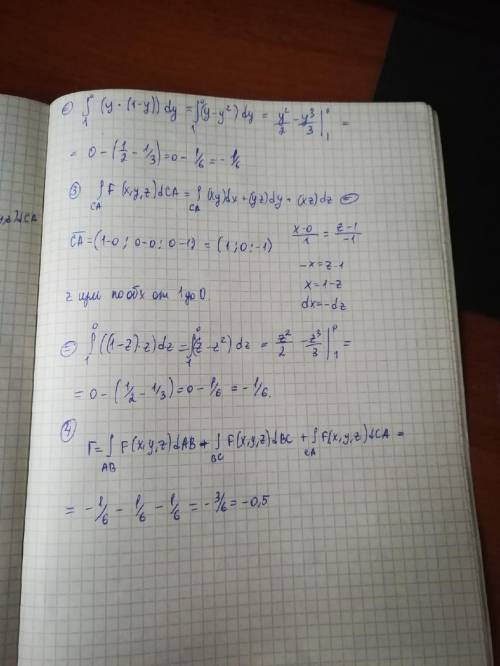 ⊜ ∫₁⁰ (y·(1-y)) dy = ∫₁⁰ (y-y²) dy = y²/2 - y³/3 |₁⁰ =
= 0 - (1/2 - 1/3) = 0 - 1/6 = -1/6
③ ∫_CA F(x,y,z) dCA = ∫_CA (xy)dx + (yz)dy + (xz)dz ⊜
CA = (1-0; 0-0; 0-1) = (1; 0; -1)
x-0/1 = z-1/-1
-x = z-1
x = 1-z
dx = -dz
z изм по обх от 1 до 0.
⊜ ∫₁⁰ ((1-z)·z) dz = ∫₁⁰ (z - z²) dz = z²/2 - z³/3 |₁⁰ =
= 0 - (1/2 - 1/3) = 0 - 1/6 = -1/6.
④
Г = ∫_AB F(x,y,z) dAB + ∫_BC F(x,y,z) dBC + ∫_CA F(x,y,z) dCA =
= -1/6 - 1/6 - 1/6 = -3/6 = -0,5